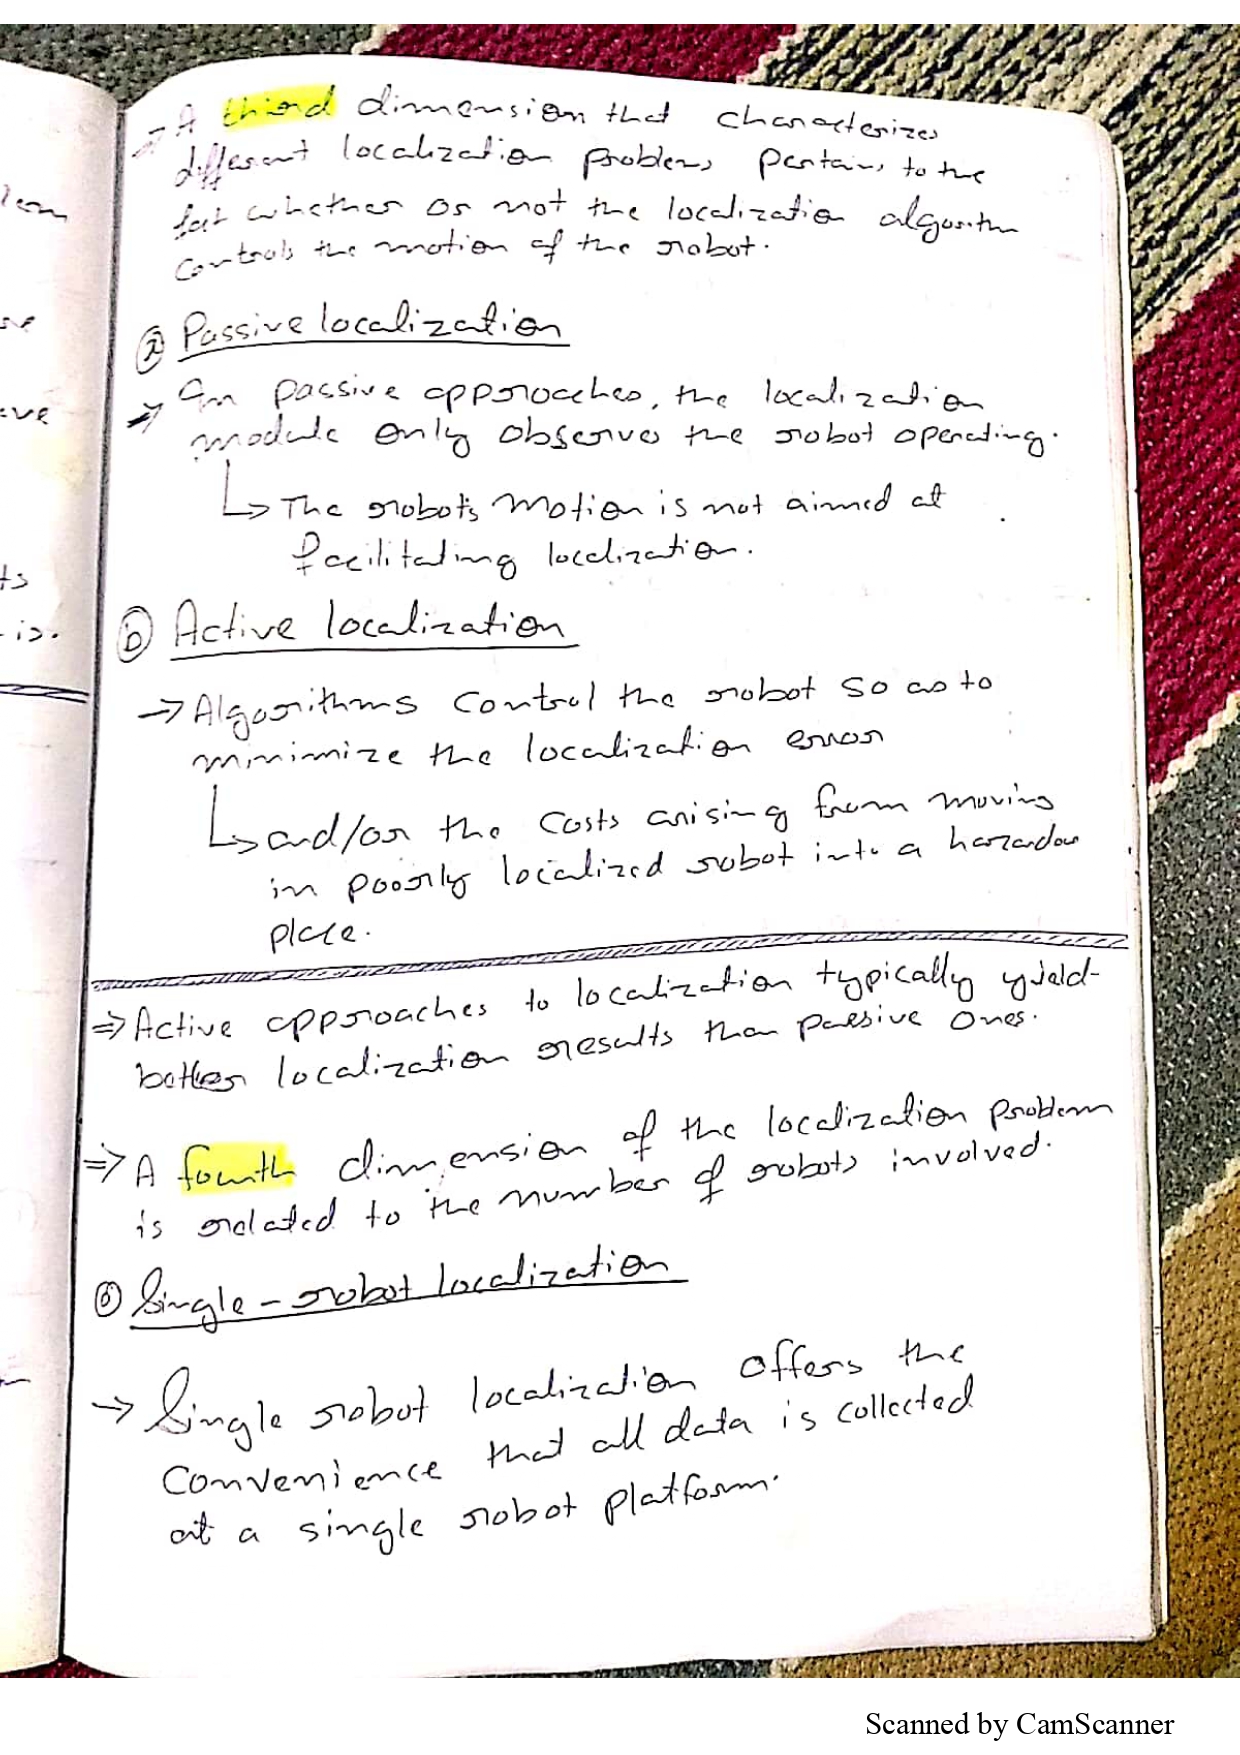 → A third dimension that characterizes
different localization problems pertains to the
fact whether or not the localization algorithm
controls the motion of the robot.
ⓐ Passive localization
→ In passive approaches, the localization
module only observes the robot operating.
↳ The robot's motion is not aimed at
facilitating localization.
ⓑ Active localization
→ Algorithms control the robot so as to
minimize the localization error
↳ and/or the costs arising from moving
in poorly localized robot into a hazardous
place.
⇒ Active approaches to localization typically yield
better localization results than passive ones.
⇒ A fourth dimension of the localization problem
is related to the number of robots involved.
Single-robot localization
→ Single robot localization offers the
convenience that all data is collected
at a single robot platform.
lem
eve
ts
is.
Scanned by CamScanner